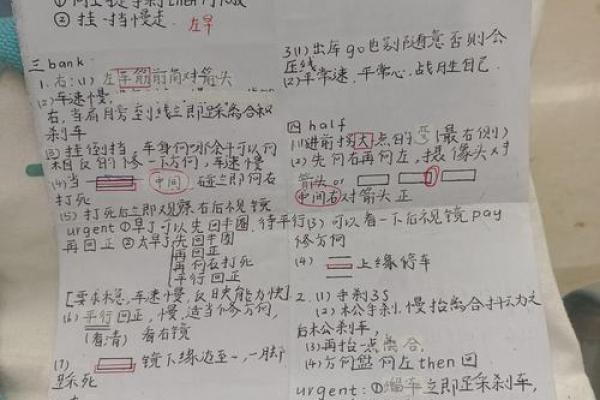 ② 挂一挡慢走. 左早
三 bank.
1. 右: (1) 左车筋前角对箭头
(2) 车速慢,
右, 当肩膀穿到线立即踩离合和
刹车
(3) 挂倒挡, 车身
相反的修一下方向, 车速慢
(4) 当 中间 碰立即向右
打死
(5) 打死后立即观察右后视镜
urgent ① 早了可以先回半圈, 待平行
再回正 ② 太早了先回半圈
再回正
再向右打死
平行回正
[要求稳, 车速慢, 反映能力快]
(6) 平行回正, 慢, 适当修方向,
(看清) 看右镜
(7) 镜下缘边至一, 一脚
踩死
3 (1) 出库 go 也别随意否则会
压线
(2) 平常速, 平常心, 战胜自己.
四 half
(1) 进前找大点的 (最右侧)
(2) 先向右再向左, 摄像头对
箭头 or
中间右对箭头正
(3) 可以看一下后视镜 pay
修方向
(4) 上缘停车
2. (1) 手刹 3S
(2) 松手刹, 慢抬离合抖动之
后松刹车,
(3) 再抬一点离合,
(4) 方向盘向左 then 回
urgent: ① 溜车立即踩刹车,